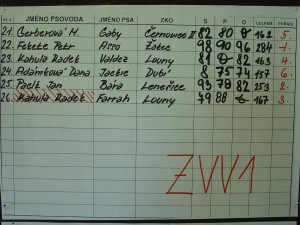 JMÉNO PSOVODA JMÉNO PSA ZKO S P O CELKEM
21. Gerberová M. Gaby Černovice II 82 80 0 162 5.
22. Fekete Petr Asso Žatec 98 90 96 284 1.
23. Kahula Radek Valdez Louny 81 0 82 163 4.
24. Adámková Dana Jackie Dubí 8 75 74 157 6.
25. Pačlt Jan Bára Lenešice 93 78 82 253 2.
26. Kahula Radek Farrah Louny 79 88 0 167 3.
ZVV1